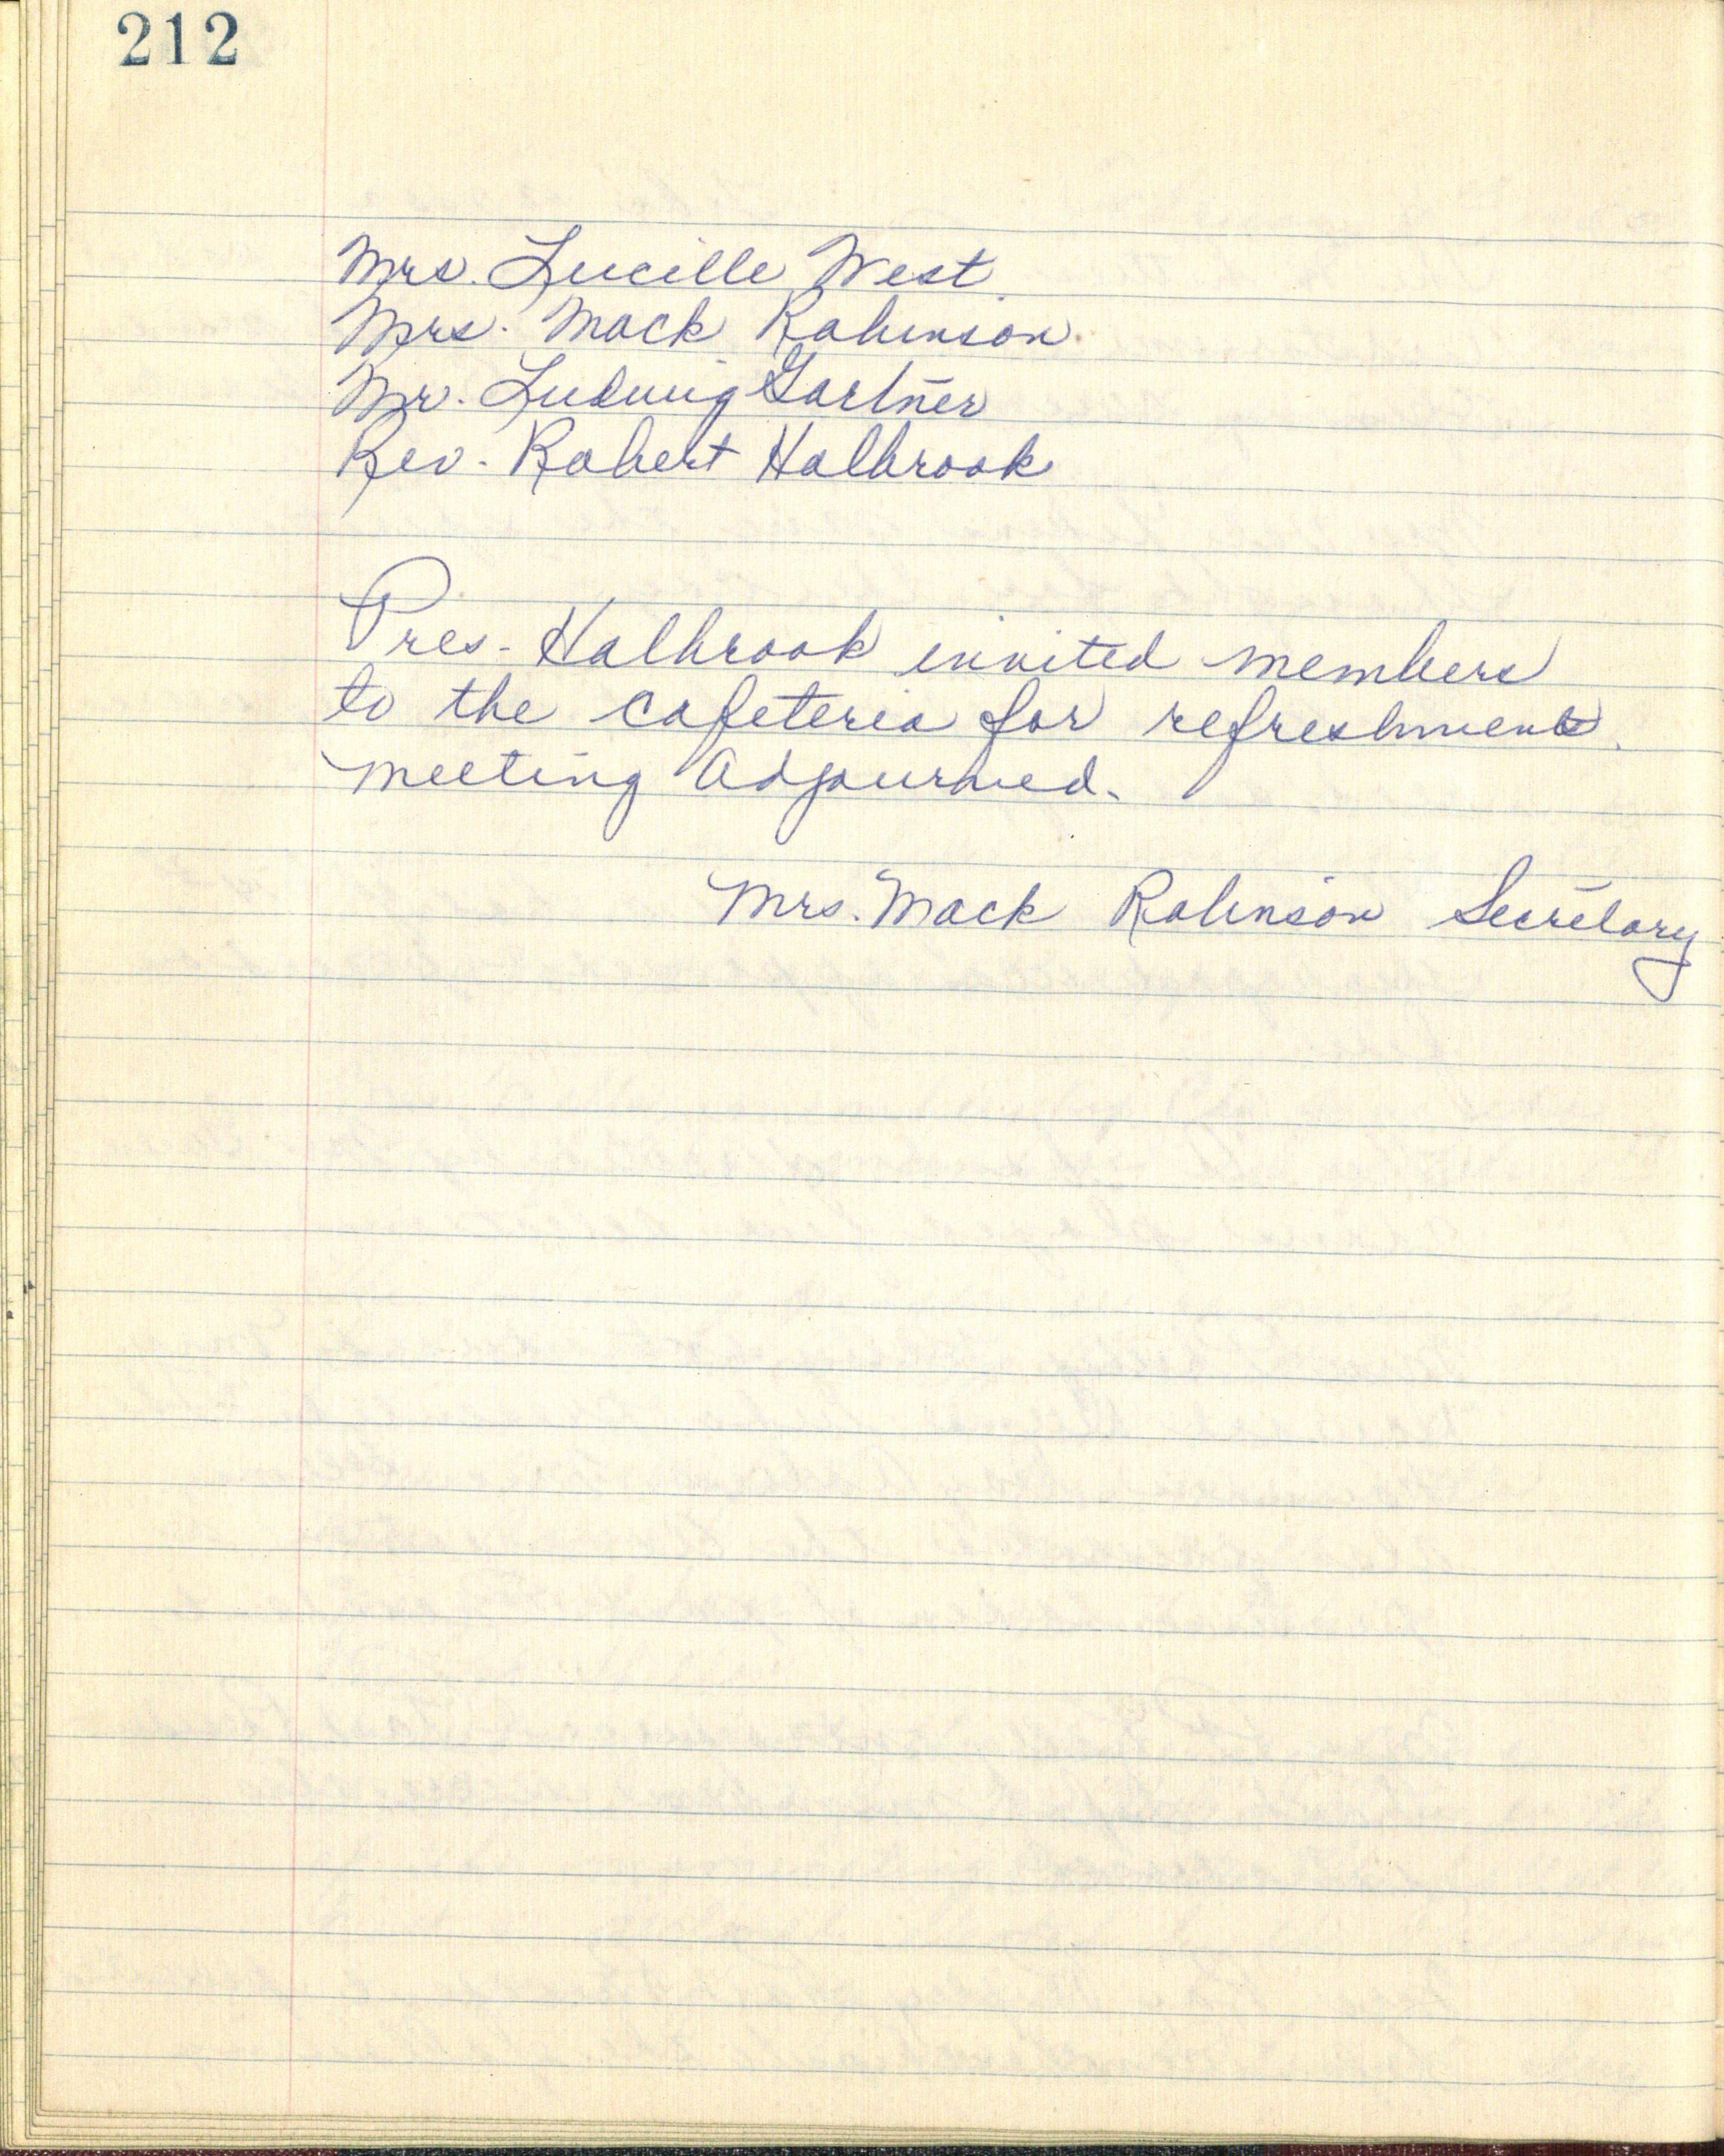 212
Mrs. Lucille West.
Mrs. Mack Robinson.
Mr. Ludwig Gartner
Rev. Robert Holbrook
Pres. Holbrook invited members
to the cafeteria for refreshments.
meeting adjourned.
Mrs. Mack Robinson Secretary